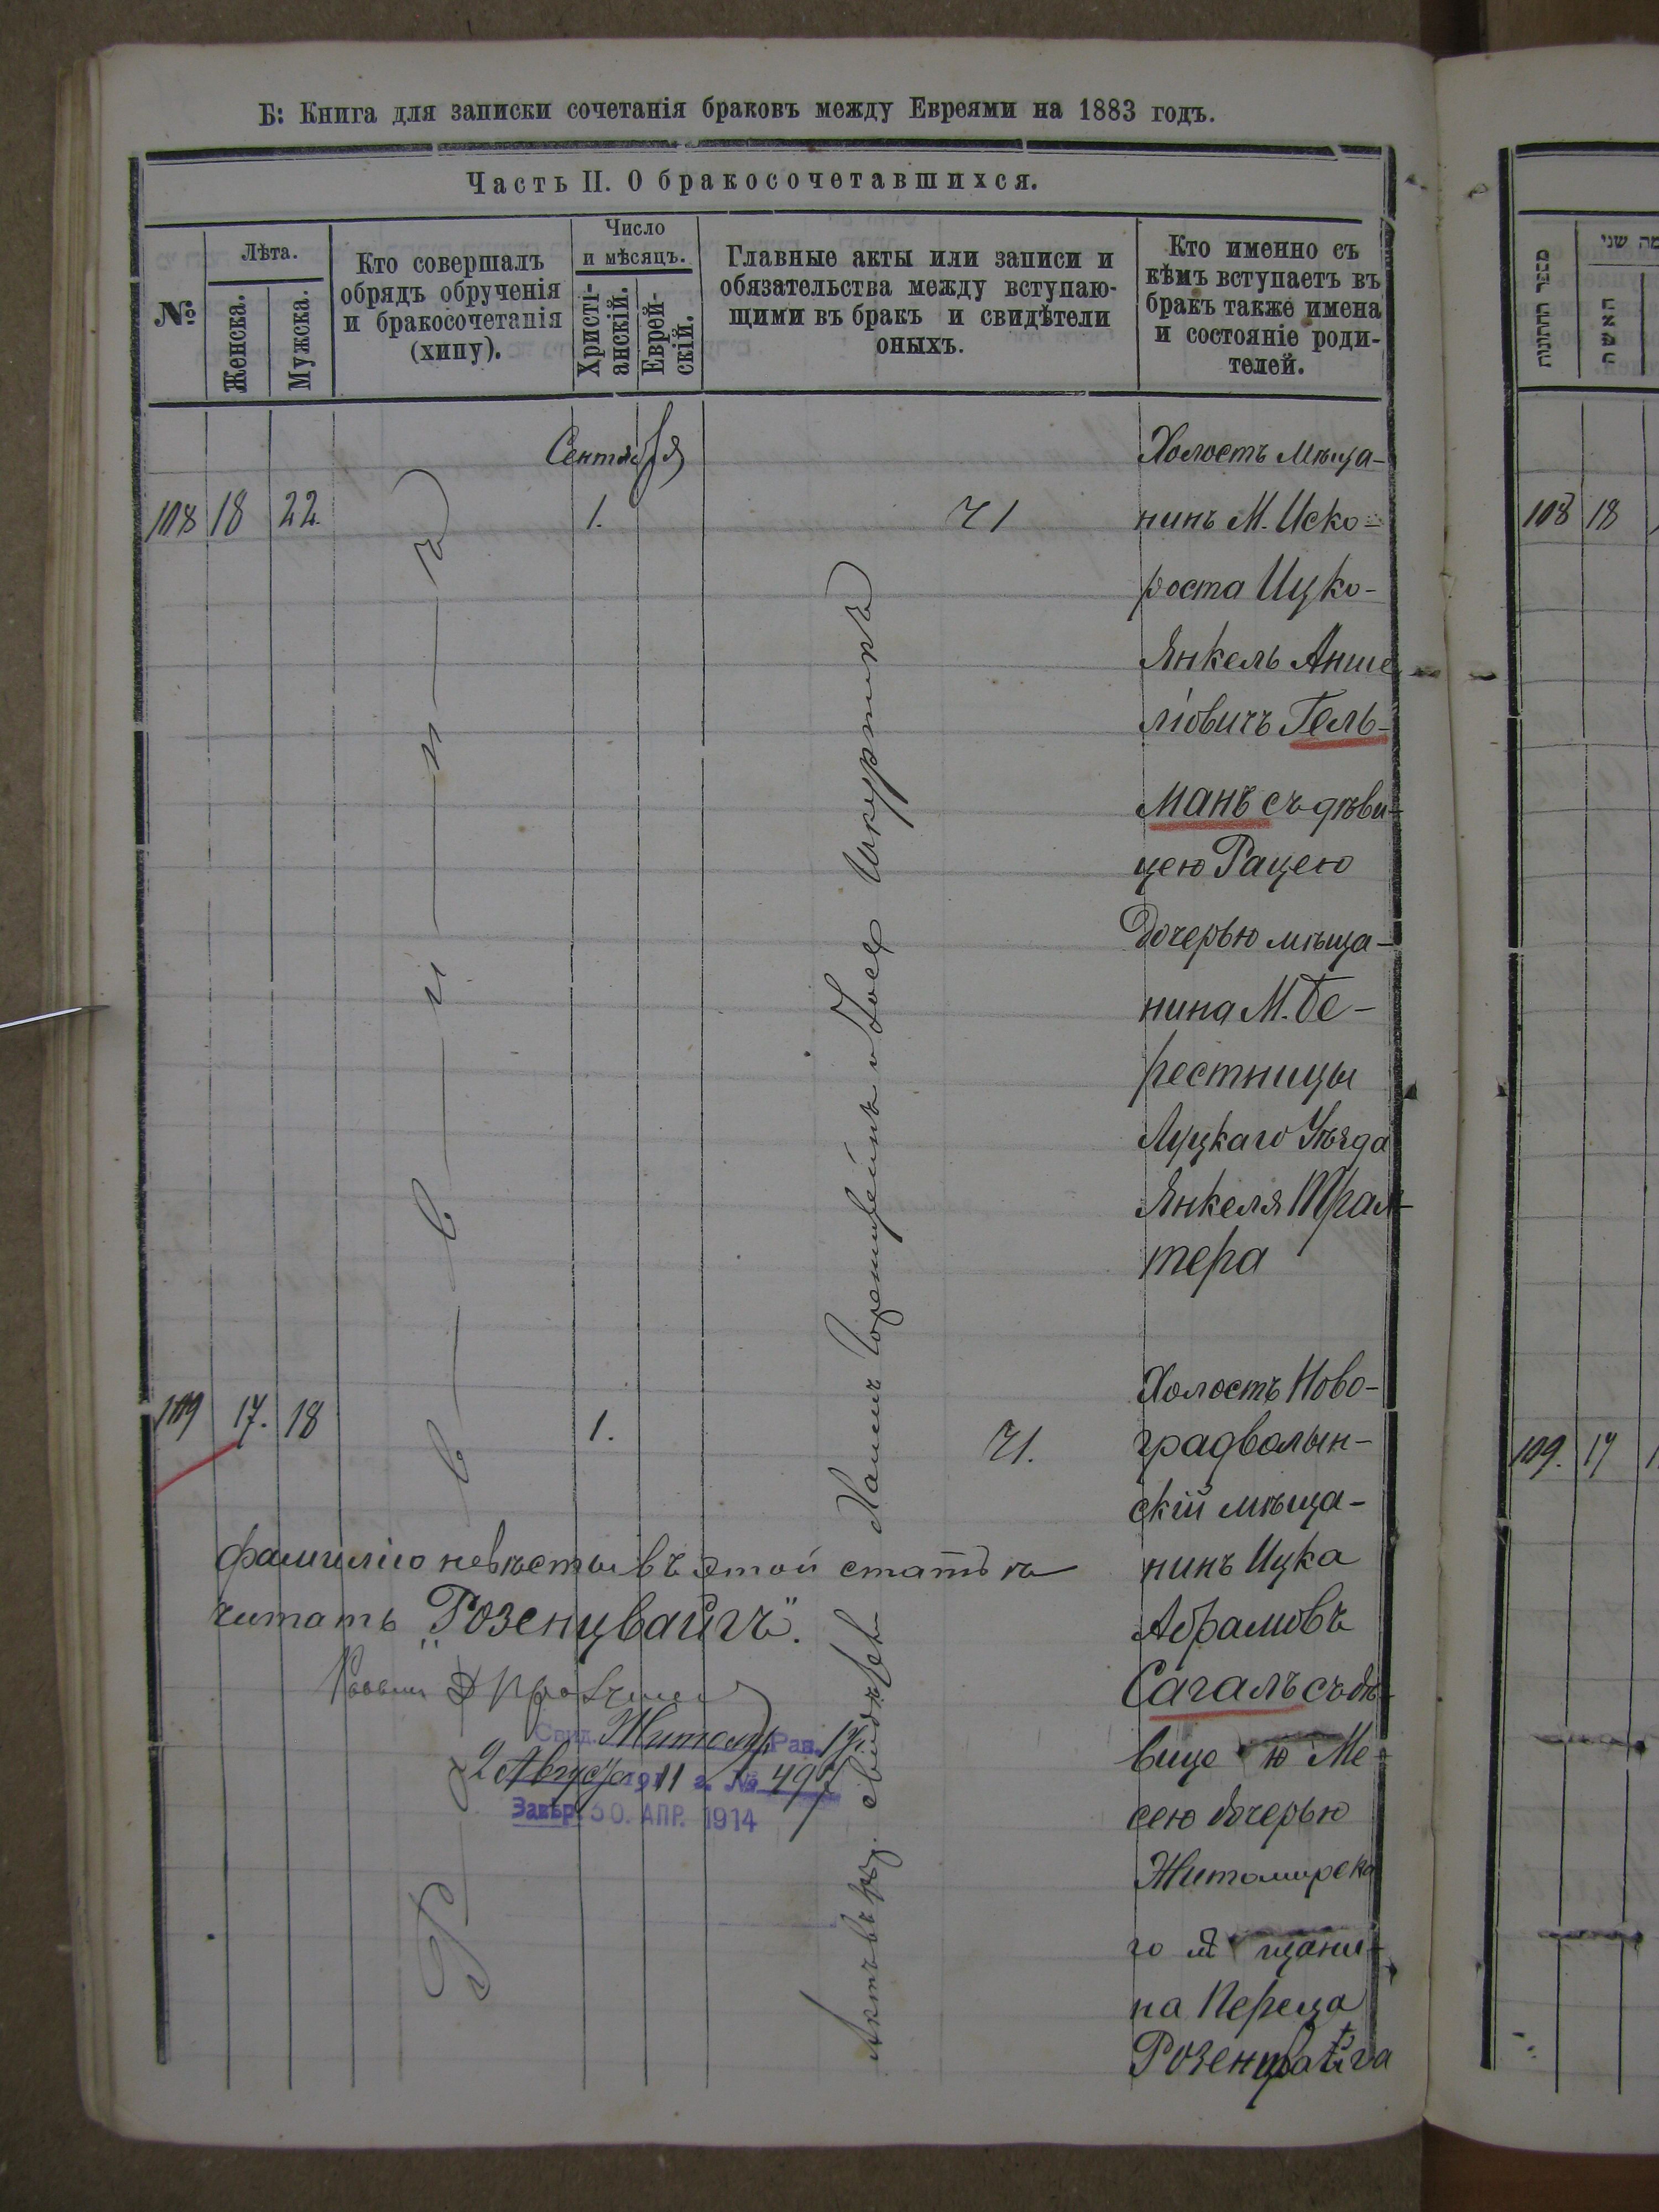 Б: Книга для записки сочетанія браковъ между Евреями на 1883 годъ.
Часть II. О бракосочетавшихся.
№
Лѣта.
Женска.
Мужска.
Кто совершалъ
обрядъ обрученія
и бракосочетанія
(хипу).
Число
и мѣсяцъ.
Христі-
анскій.
Еврей-
скій.
Главные акты или записи и
обязательства между вступаю-
щими въ бракъ и свидѣтели
оныхъ.
Кто именно съ
кѣмъ вступаетъ въ
бракъ также имена
и состояніе роди-
телей.
Сентября
108 18 22. 1. 71
Холостъ мѣща-
нинъ М. Иско-
роста Ицко-
Янкель Анше
ліовичъ Гель-
манъ съ дѣви-
цею Рацею
дочерью мѣща-
нина М. Бе-
рестницы
Луцкаго Уѣзда
Янкеля Трах-
тера
Р а в в и н ъ
109 17. 18 1. 71.
Холостъ Ново-
градволын-
скій мѣща-
нинъ Ицка
Абрамовъ
Сагалъ съ дѣ-
вице ю Ме-
сею дочерью
Житомирска
го м щани-
на Переца
Розенцвайга
фамилію невѣсты въ этой статьѣ
читать „Розенцвайгъ".
Раввинъ
Свид. Житом. Рав.
2 Августа 1911 г. № 497
Завѣр. 30. АПР. 1914
מספר החתונות
האשה
108 18
109. 17